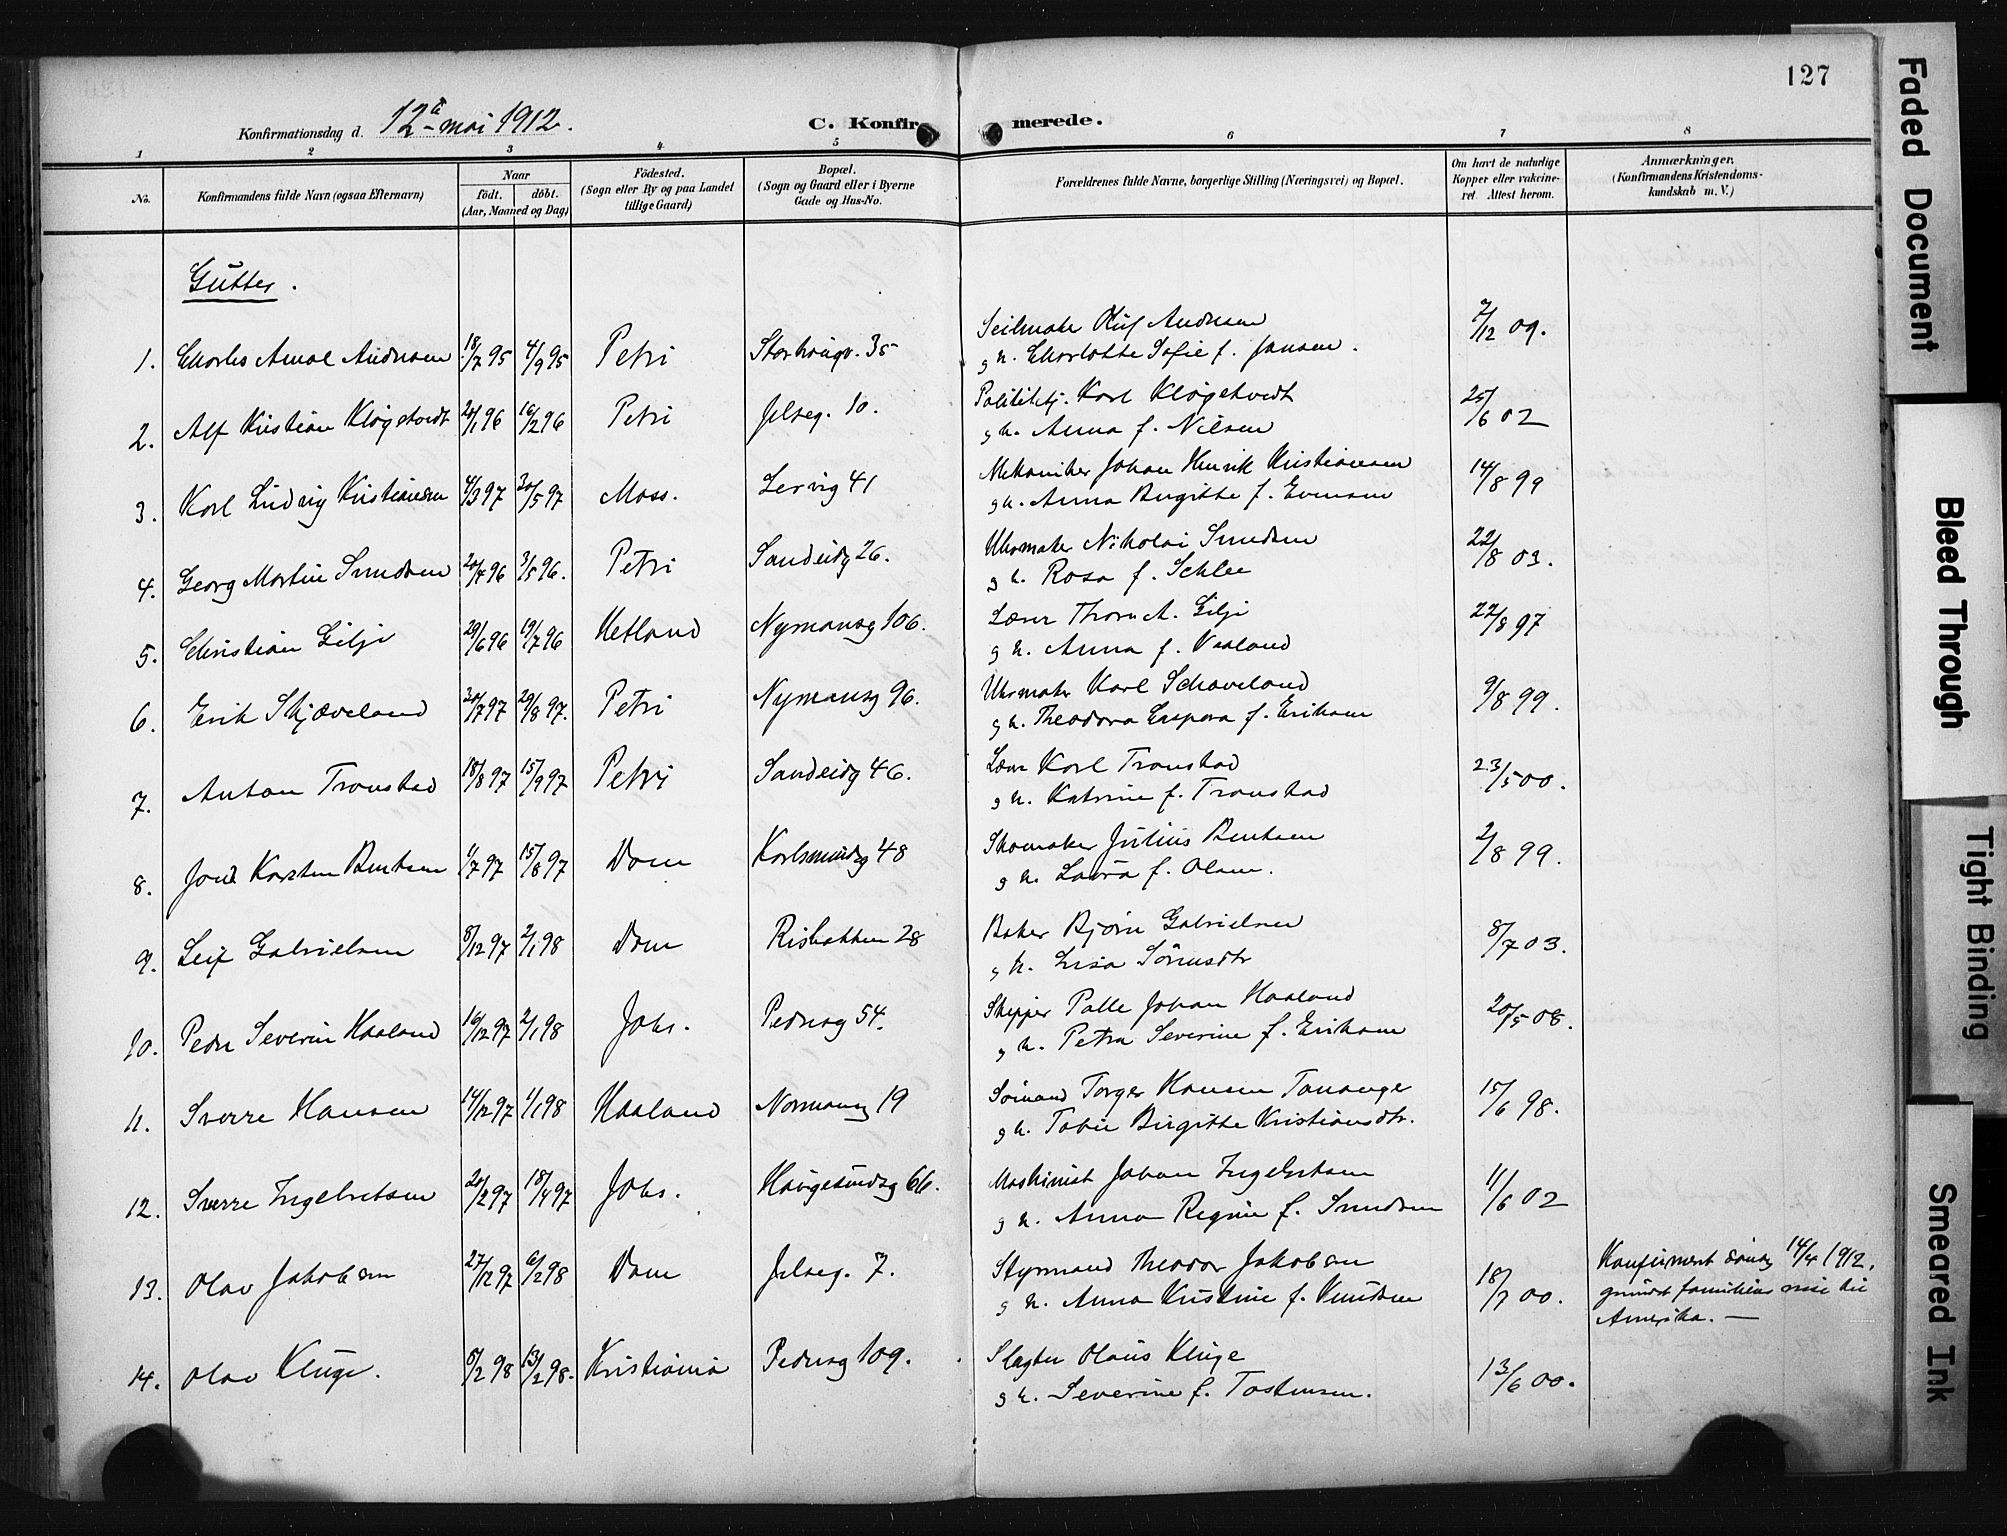 127
Konfirmationsdag d. 12te mai 1912.
C. Konfirmerede.
1 2 3 4 5 6 7 8
No.
Konfirmandens fulde Navn (ogsaa Efternavn)
Naar
født. døbt.
(Aar, Maaned og Dag)
Födested.
(Sogn eller By og paa Landet
tillige Gaard)
Bopæl.
(Sogn og Gaard eller i Byerne
Gade og Hus-No.
Forældrenes fulde Navne, borgerlige Stilling (Næringsvei) og Bopæl.
Om havt de naturlige
Kopper eller vakcine-
ret. Attest herom.
Anmærkninger.
(Konfirmandens Kristendoms-
kundskab m. V.)
Gutter.
1. Charles Amal Andresen 18/7 95 4/9 95 Petri Storhaugv. 35 Seilmaker Oluf Andresen 7/12 09.
g h. Charlotte Sofie f. Jansen.
2. Alf Kristian Kløgetvedt 20/1 96 16/2 96 Petri Jelseg. 10. Politibetj. Karl Kløgetvedt 25/6 02
g h. Anna f. Nilsen
3. Karl Ludvig Kristiansen 4/3 97 30/5 97 Moss. Lervig 41 Mekaniker Johan Henrik Kristiansen 14/8 99
g h. Anna Birgitte f. Evensen
4. Georg Martin Svendsen 20/4 96 3/5 96. Petri Sandeidg 26. Uhrmaker Nikolai Svendsen 22/8 03.
g h. Rosa f. Schlee
5. Christian Gilje 29/6 96 19/7 96 Hetland Nymansg 106. Lærer Thore A. Gilje 27/8 97
g h. Anna f. Vealand
6. Erik Skjæveland 30/7 97 29/8 97. Petri Nymansg 96. Uhrmaker Karl Schæveland 9/8 99.
g h. Theodora Caspara f. Eriksen
7. Anton Tronstad 18/8 97 15/9 97 Petri Sandeidg 46. Lærer Karl Tronstad 23/5 00.
g h. Katrine f. Tronstad
8. Karsten Bentsen 1/7 97 15/8 97 Dom Karlsmindeg 48 Skomaker Julius Bentsen 2/8 99.
g h. Laura f. Olsen.
9. Leif Gabrielsen 8/12 97 2/1 98 Dom Risbakken 28 Baker Bjørn Gabrielsen 8/7 03.
g h. Lisa Sørensdtr
10. Peder Severin Haaland 16/12 97 2/1 98 Johs. Pedersg 54. Skipper Palle Johan Haaland 20/5 08.
g h. Petra Severine f. Eriksen
11. Sverre Hansen 14/12 97 1/1 98 Haaland Normansg 19 Sømand Torger Hansen Tananger 15/6 98.
g h. Tobie Birgitte Kristiansdtr.
12. Sverre Ingebretsen 20/2 97 18/4 97 Johs. Haugesundsg 66. Maskinist Johan Ingebretsen 11/6 02
g h. Anna Regine f. Svendsen
13. Olav Jakobsen 27/12 97 6/2 98 Dom Jelseg. 7. Styrmand Theodor Jakobsen 18/7 00. Konfirmert søndag 14/4 1912,
g h. Anna Kristine f. Knudsen grundet familiens reise til
Amerika. —
14. Olav Kluge. 5/2 98 13/2 98. Kristiania Pedersg 109. Slagter Olaus Kluge 13/6 00.
g h. Severine f. Tostensen.
Faded Document
Bleed Through
Tight Binding
Smeared Ink